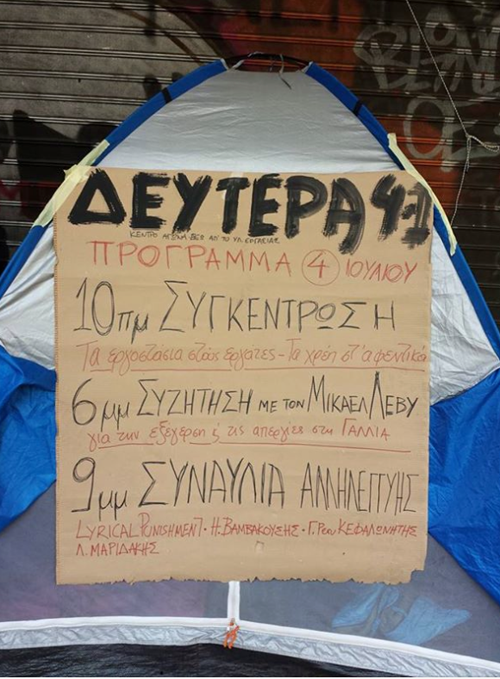 ΔΕΥΤΕΡΑ
ΚΕΝΤΡΟ ΑΘΗΝΑ ΕΞΩ ΑΠ ΤΟ ΥΠ. ΕΡΓΑΣΙΑΣ
ΠΡΟΓΡΑΜΜΑ 4 ΙΟΥΛΙΟΥ
10πμ ΣΥΓΚΕΝΤΡΩΣΗ
Τα εργοστάσια στους εργάτες - Τα χρέη στ' αφεντικά
6μμ ΣΥΖΗΤΗΣΗ ΜΕ ΤΟΝ ΜΙΚΑΕΛ ΛΕΒΥ
για την εξέγερση & τις απεργίες στη ΓΑΛΛΙΑ
9μμ ΣΥΝΑΥΛΙΑ ΑΛΛΗΛΕΓΓΥΗΣ
LYRICAL PUNISHMENT · Η. ΒΑΜΒΑΚΟΥΣΗΣ · Γ. ΚΕΦΑΛΩΝΗΤΗΣ
Λ. ΜΑΡΙΔΑΚΗΣ